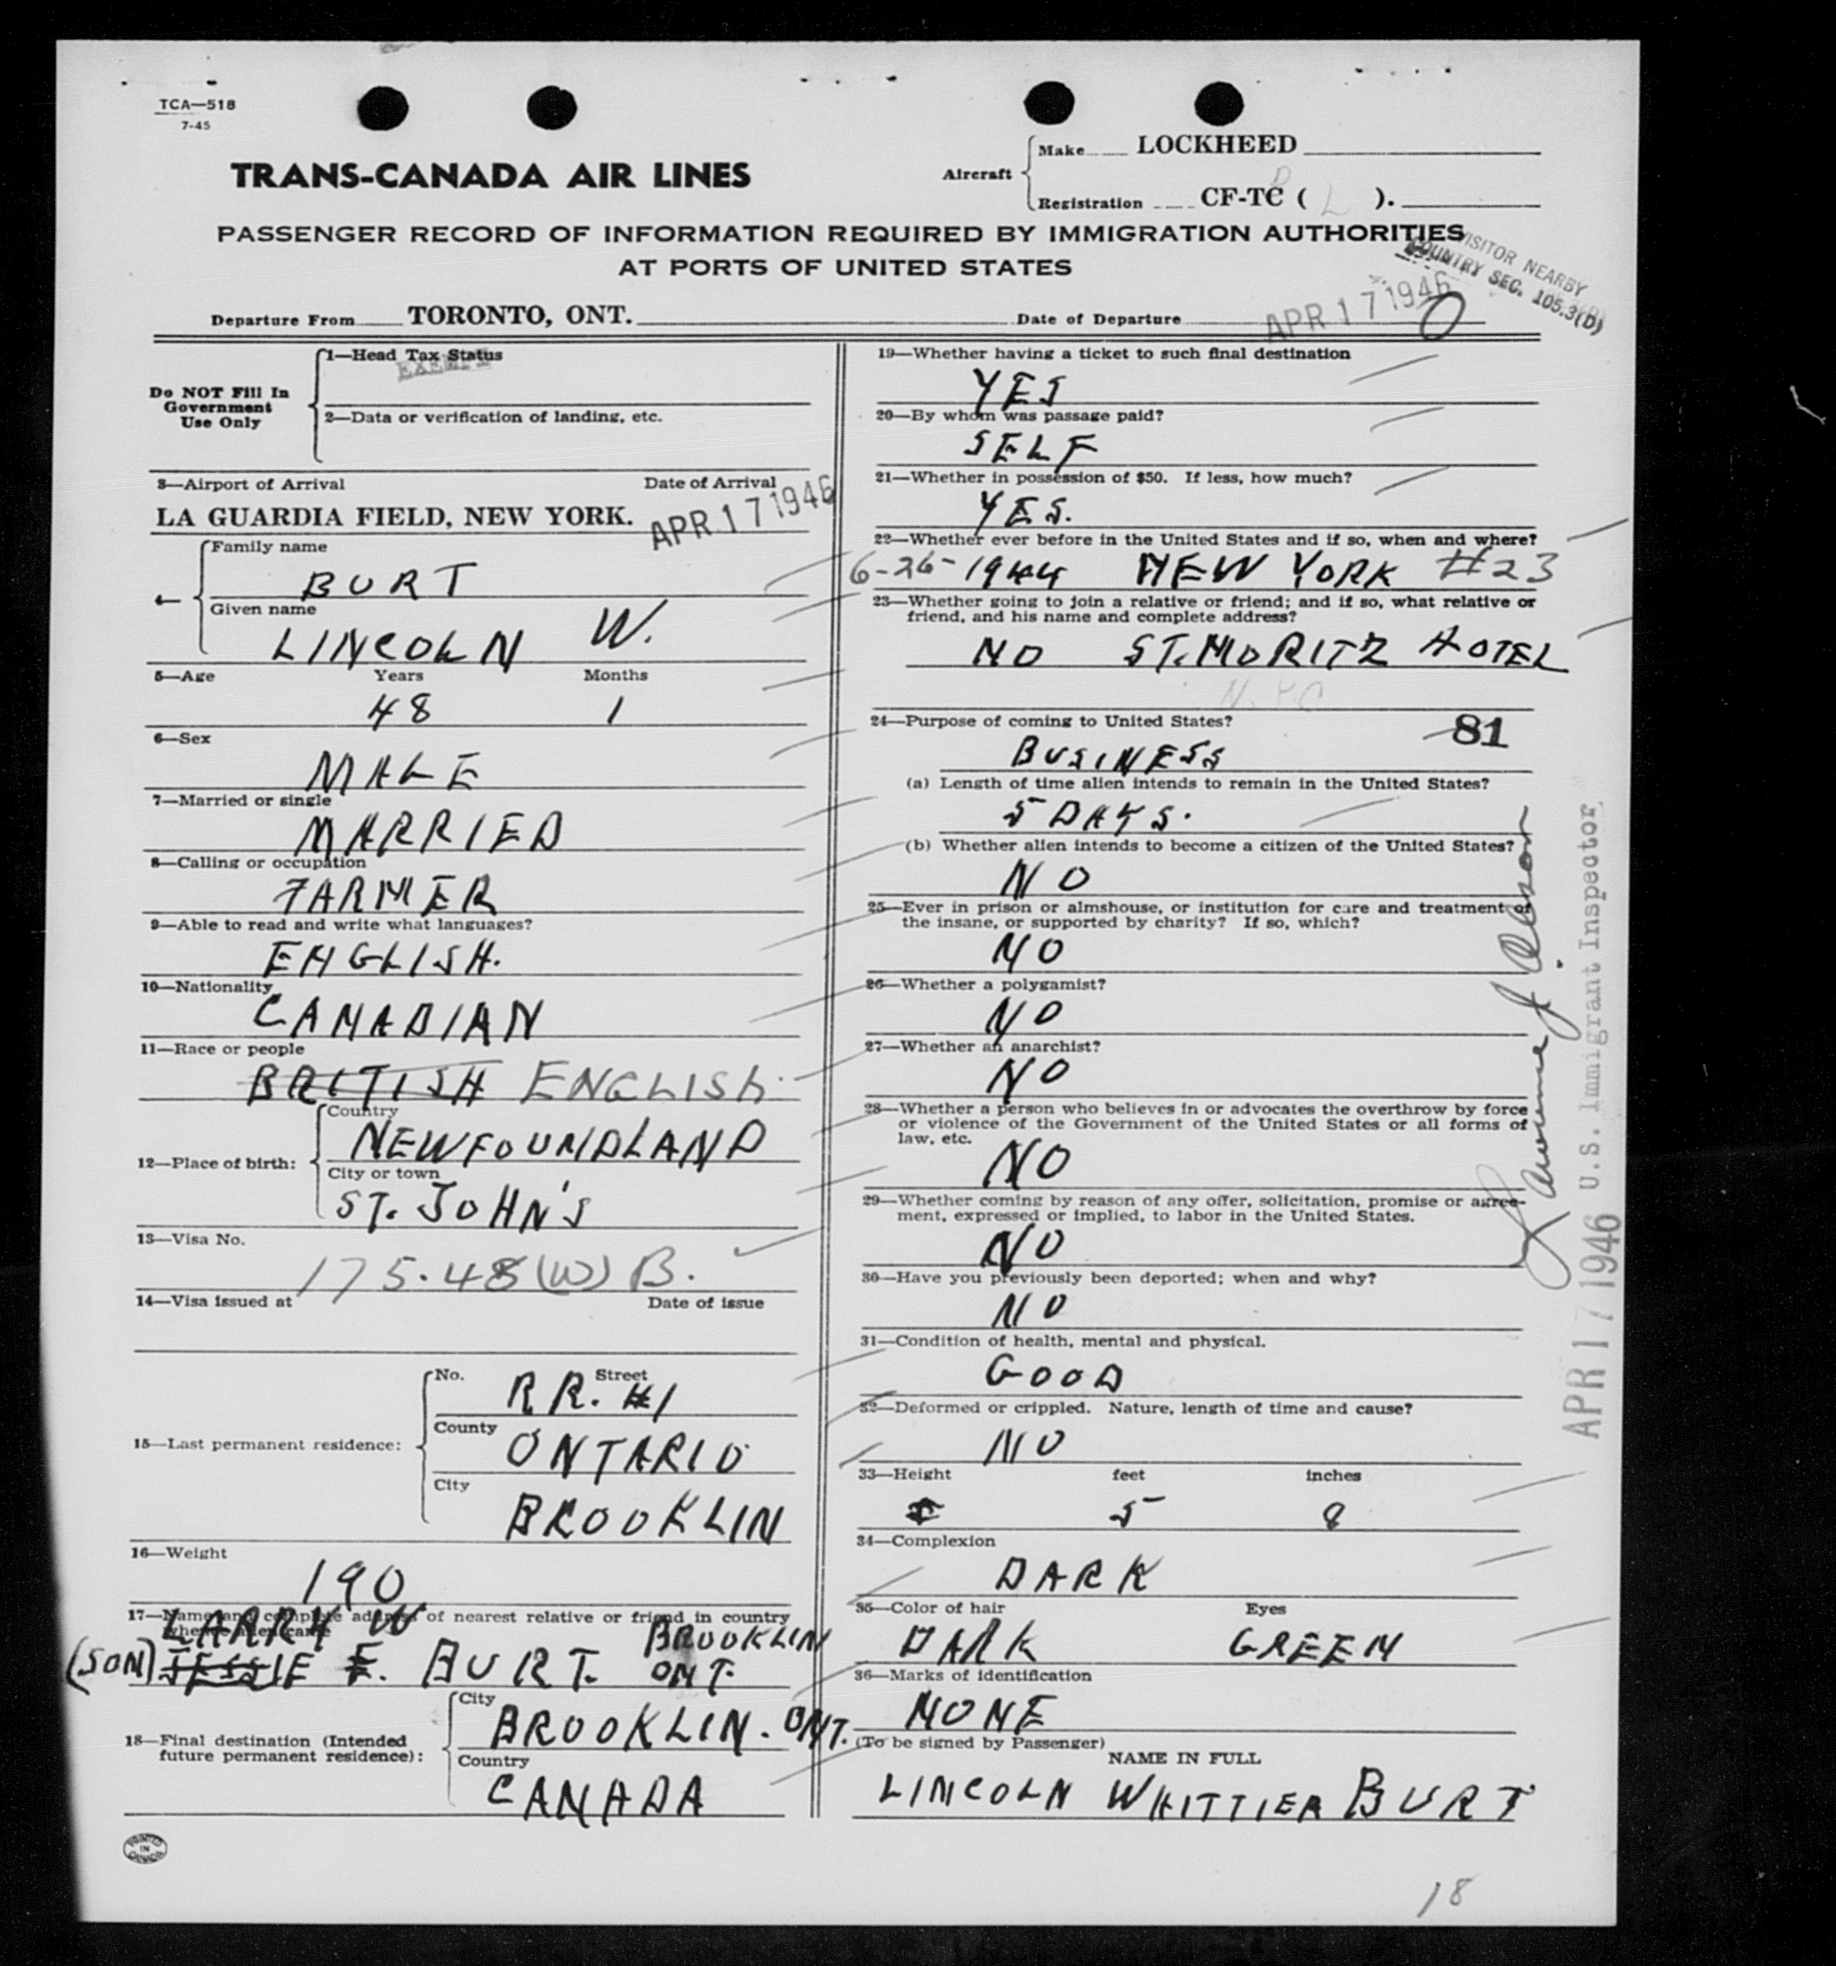 TCA—518
7-45
TRANS-CANADA AIR LINES
Aircraft
Make LOCKHEED
Registration CF-TC ( L ).
PASSENGER RECORD OF INFORMATION REQUIRED BY IMMIGRATION AUTHORITIES
AT PORTS OF UNITED STATES
VISITOR NEARBY
COUNTRY SEC. 105.3(D)
Departure From TORONTO, ONT. Date of Departure APR 17 1946
Do NOT Fill In
Government
Use Only
1—Head Tax Status
EXEMPT
2—Data or verification of landing, etc.
3—Airport of Arrival Date of Arrival
LA GUARDIA FIELD, NEW YORK. APR 17 1946
4—
Family name
BURT
Given name
LINCOLN W.
5—Age Years Months
48 1
6—Sex
MALE
7—Married or single
MARRIED
8—Calling or occupation
FARMER
9—Able to read and write what languages?
ENGLISH.
10—Nationality
CANADIAN
11—Race or people
BRITISH ENGLISH
12—Place of birth:
Country
NEWFOUNDLAND
City or town
ST. JOHN'S
13—Visa No.
175.48(W) B.
14—Visa issued at Date of issue
15—Last permanent residence:
No. Street
RR. #1
County
ONTARIO
City
BROOKLIN
16—Weight
190
17—Name and complete address of nearest relative or friend in country
whence alien came
LARRY W BROOKLIN
(SON) JESSIE E. BURT. ONT.
18—Final destination (Intended
future permanent residence):
City
BROOKLIN. ONT.
Country
CANADA
PRINTED
IN
CANADA
19—Whether having a ticket to such final destination
YES
20—By whom was passage paid?
SELF
21—Whether in possession of $50. If less, how much?
YES.
22—Whether ever before in the United States and if so, when and where?
6-26-1944 NEW YORK #23
23—Whether going to join a relative or friend; and if so, what relative or
friend, and his name and complete address?
NO ST. MORITZ HOTEL
N.Y.C
24—Purpose of coming to United States?
81
BUSINESS
(a) Length of time alien intends to remain in the United States?
5 DAYS.
(b) Whether alien intends to become a citizen of the United States?
NO
25—Ever in prison or almshouse, or institution for care and treatment of
the insane, or supported by charity? If so, which?
NO
26—Whether a polygamist?
NO
27—Whether an anarchist?
NO
28—Whether a person who believes in or advocates the overthrow by force
or violence of the Government of the United States or all forms of
law, etc.
NO
29—Whether coming by reason of any offer, solicitation, promise or agree-
ment, expressed or implied, to labor in the United States.
NO
30—Have you previously been deported; when and why?
NO
31—Condition of health, mental and physical.
GOOD
32—Deformed or crippled. Nature, length of time and cause?
NO
33—Height feet inches
5 8
34—Complexion
DARK
35—Color of hair Eyes
DARK GREEN
36—Marks of identification
NONE
(To be signed by Passenger)
NAME IN FULL
LINCOLN WHITTIER BURT
U.S. Immigrant Inspector
APR 17 1946
18